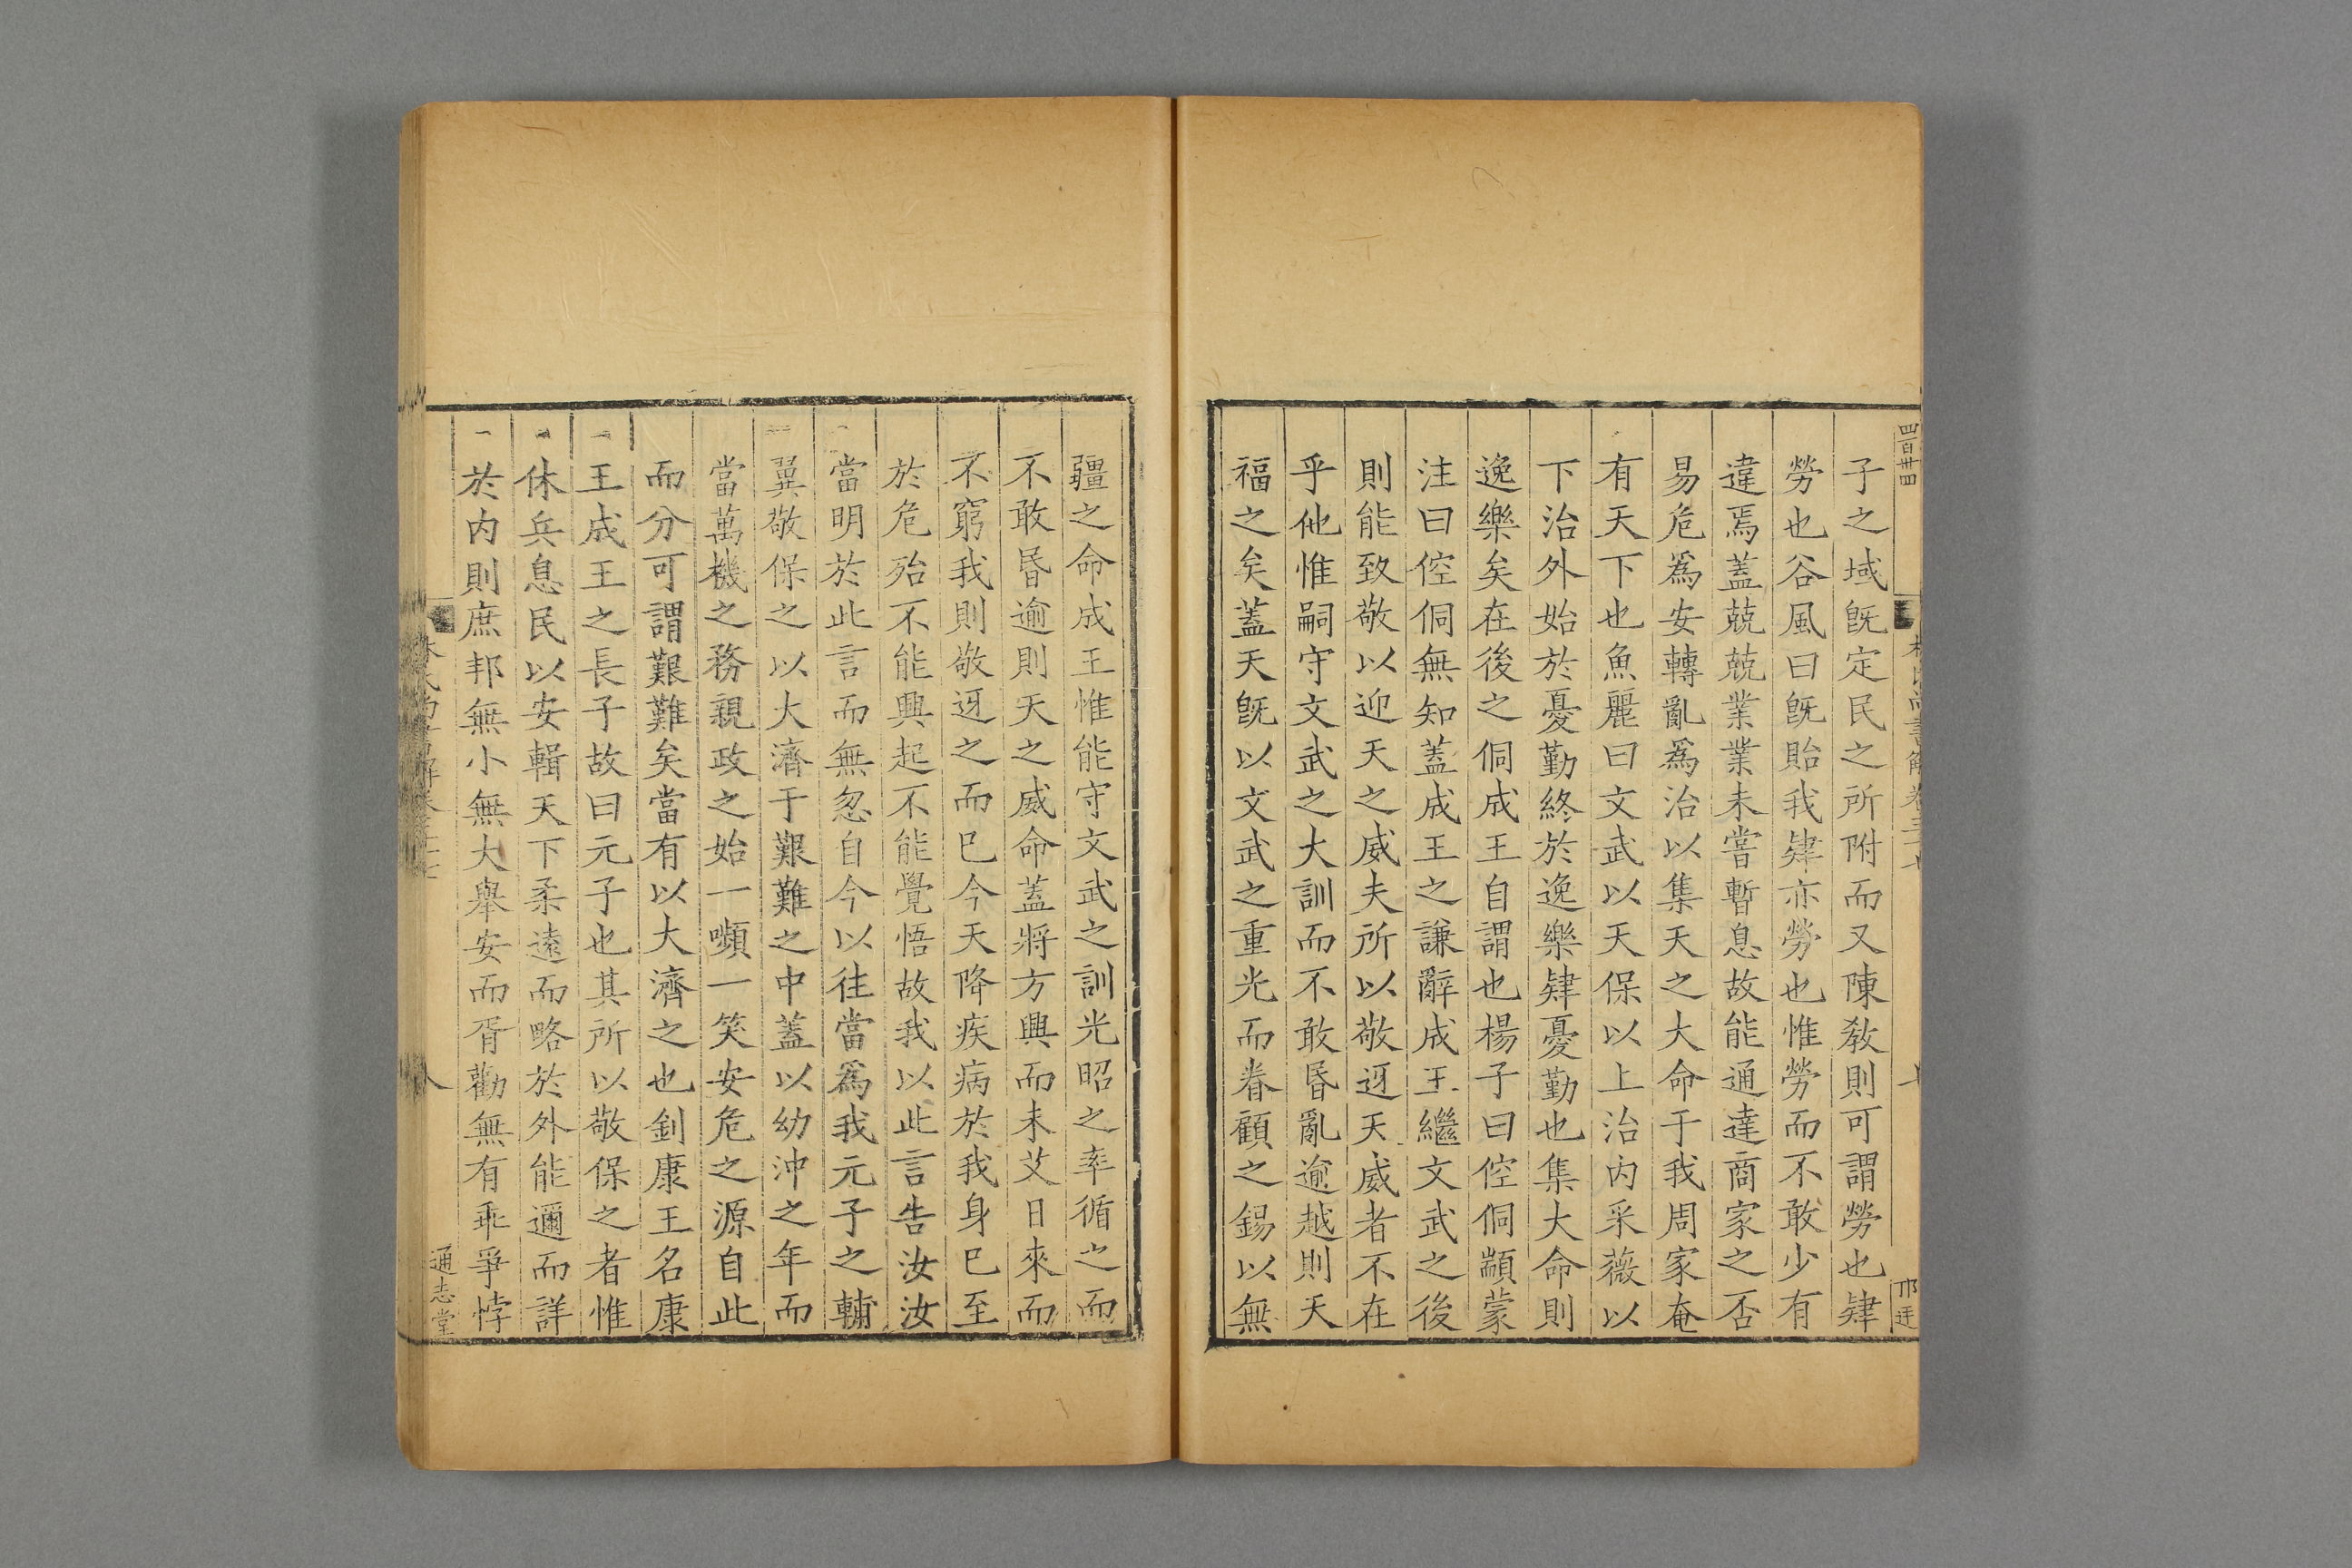 四百卄四
子之域旣定民之所附而又陳敎則可謂勞也肄
勞也谷風曰旣貽我肄亦勞也惟勞而不敢少有
違焉蓋兢兢業業未嘗暫息故能通達商家之否
易危爲安轉亂爲治以集天之大命于我周家奄
有天下也魚麗曰文武以天保以上治内采薇以
下治外始於憂勤終於逸樂肄憂勤也集大命則
逸樂矣在後之侗成王自謂也楊子曰倥侗顓蒙
注曰倥侗無知蓋成王之謙辭成王繼文武之後
則能致敬以迎天之威夫所以敬迓天威者不在
乎他惟嗣守文武之大訓而不敢昬亂逾越則天
福之矣蓋天旣以文武之重光而眷顧之錫以無
疆之命成王惟能守文武之訓光昭之率循之而
不敢昬逾則天之威命蓋將方興而未艾日來而
不窮我則敬迓之而已今天降疾病於我身已至
於危殆不能興起不能覺悟故我以此言告汝汝
當明於此言而無忽自今以往當爲我元子之輔
翼敬保之以大濟于艱難之中蓋以幼沖之年而
當萬機之務親政之始一嚬一笑安危之源自此
而分可謂艱難矣當有以大濟之也釗康王名康
王成王之長子故曰元子也其所以敬保之者惟
休兵息民以安輯天下柔遠而略於外能邇而詳
於内則庶邦無小無大舉安而胥勸無有乖爭悖
八
通志堂